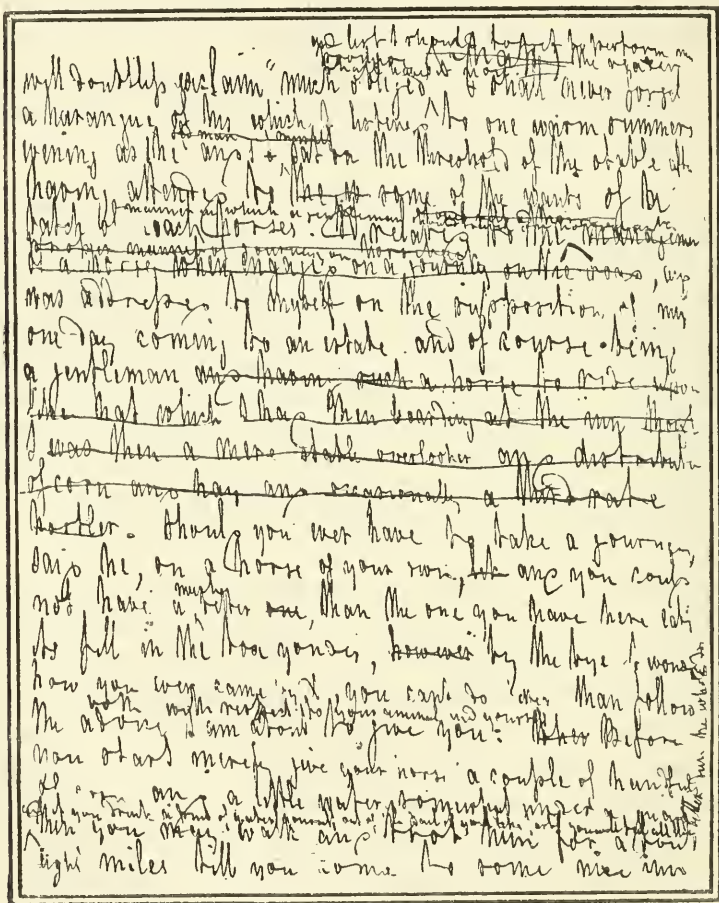 no but I should to perform
will doubtless exclaim "much obliged" I shall never forget
a harangue of his which I listened to one warm summers
old man & myself
evening as the and I sat on the threshold of the stable after
having attended to the some of the wants of the
manner in which a gentleman
batch of coach horses. It related to the management
proper manner of journeying on horseback
of a horse, when engaged on a journey on the road, and
was addressed to myself on the supposition of my
one day coming to an estate and of course being
a gentleman and having such a horse to ride upon
like that which I had then boarding at the inn though
I was then a mere stable overlooker and distributor
of corn and hay and occasionally a third rate
hostler. Should you ever have to take a journey,
said he, on a horse of your own, and you could
much
not have a better one, than the one you have here eating
its fill in the box yonder, however by the bye I wonder
how you ever came by it, you can't do than follow
both with respect to your animal and yourself
the advice I am about to give you. Before
you start merely give your horse a couple of handfuls
of and a little water somewhat under a quart
Then you may walk and trot him for about
eight miles till you come to some nice inn